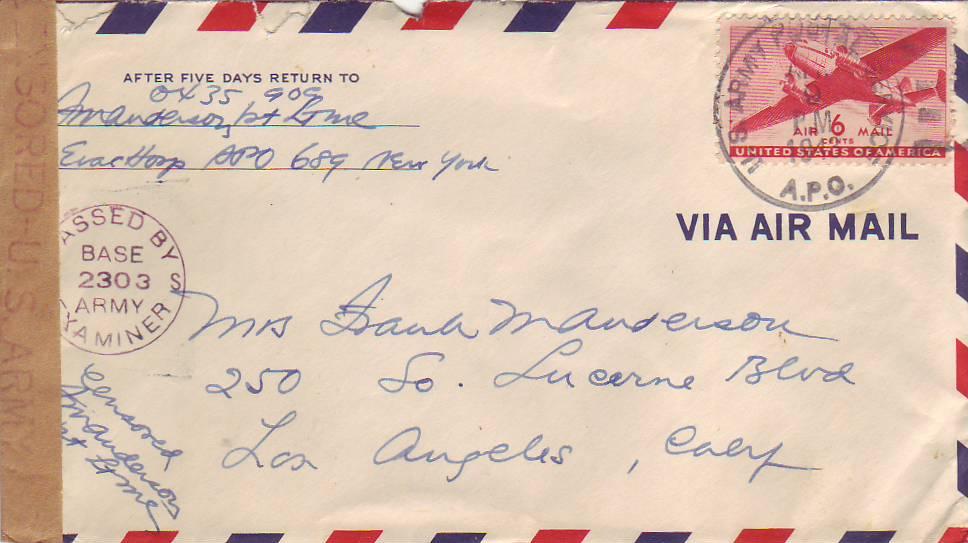 AFTER FIVE DAYS RETURN TO
0435 909
Manderson, 1st Lt MC
Evac Hosp APO 689 New York
U.S. ARMY POSTAL SERVICE
PM
A.P.O.
AIR 6 MAIL
CENTS
UNITED STATES OF AMERICA
VIA AIR MAIL
SORED-U.S. ARMY
ASSED BY
BASE
2303 S
ARMY
XAMINER
Mrs Frank Manderson
250 So. Lucerne Blvd
Los Angeles, Calif
Censored
Manderson
1st Lt MC